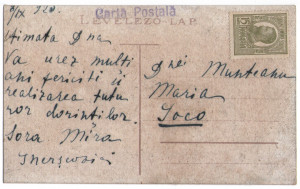 8/IX 920.
Carta Postală
LEVELEZŐ-LAP.
Stimata Dna
Va urez multi
ani fericiti si
realizarea tutu
ror dorintilor.
Sora Mița
Dnei Munteanu
Maria
Loco